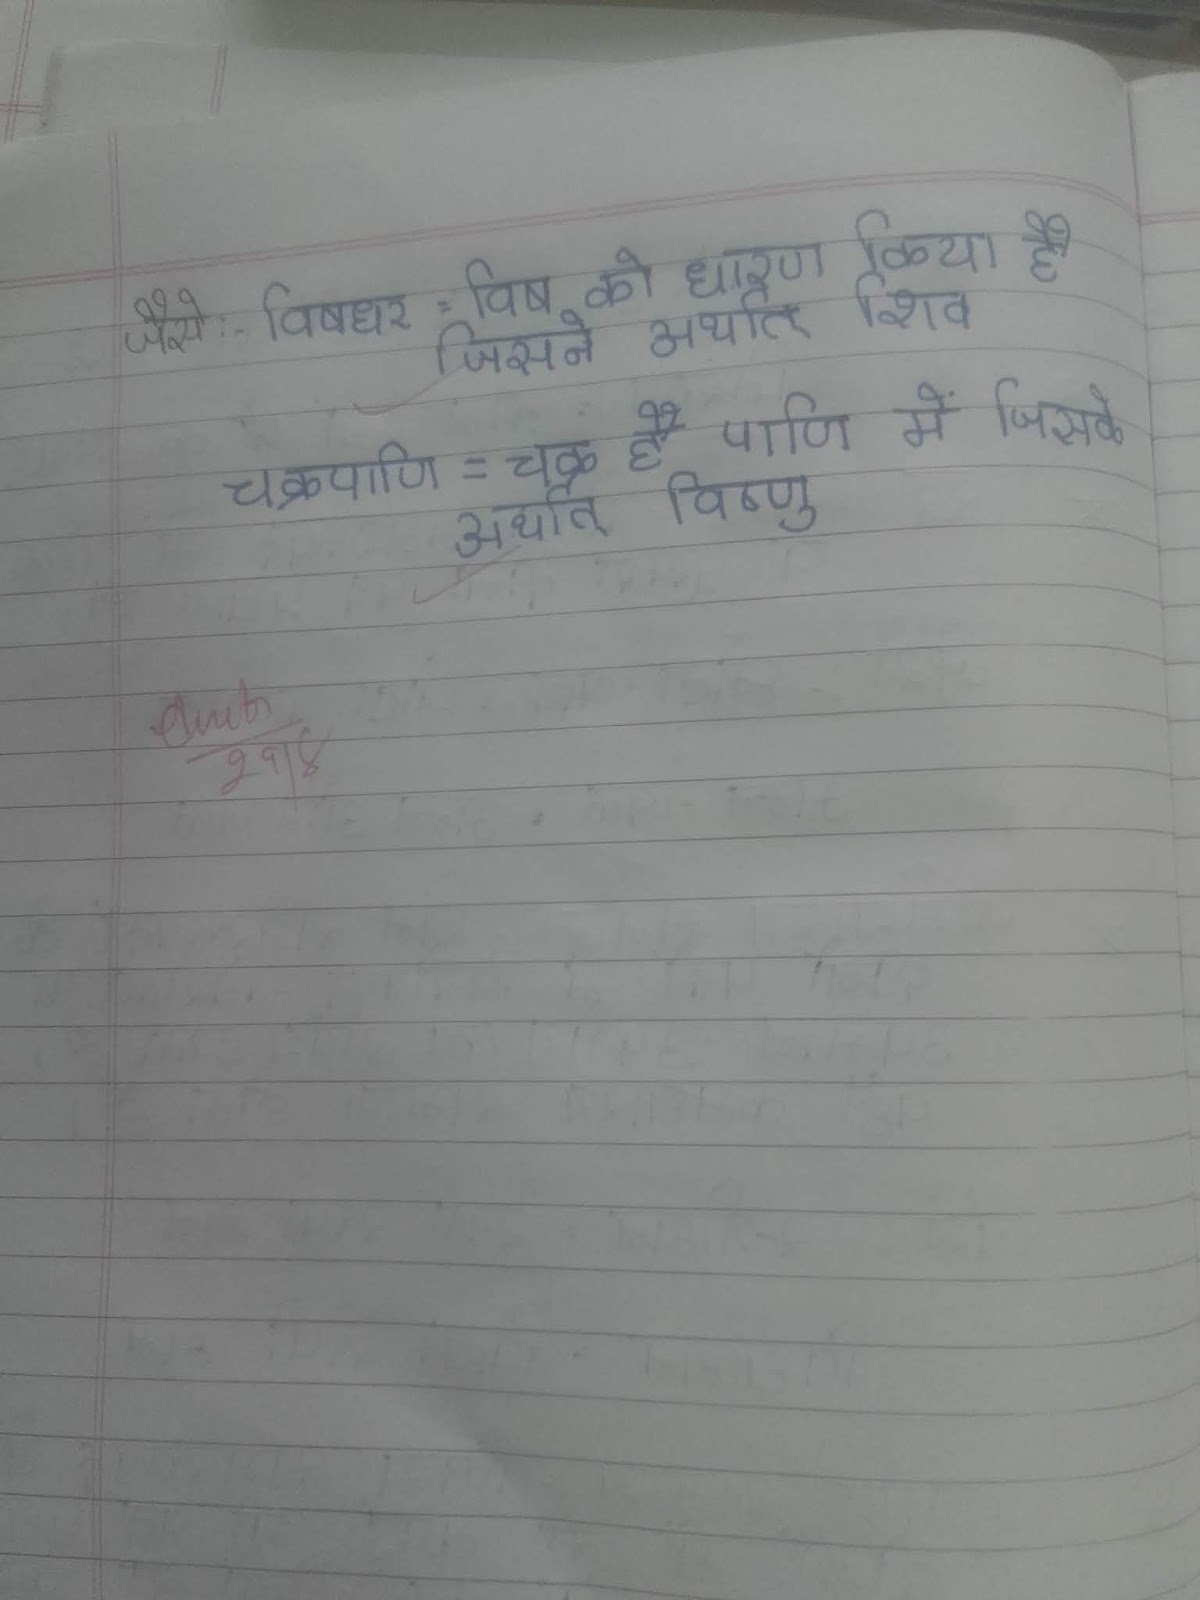 जैसे:- विषधर = विष को धारण किया है
जिसने अर्थात् शिव
चक्रपाणि = चक्र है पाणि में जिसके
अर्थात् विष्णु